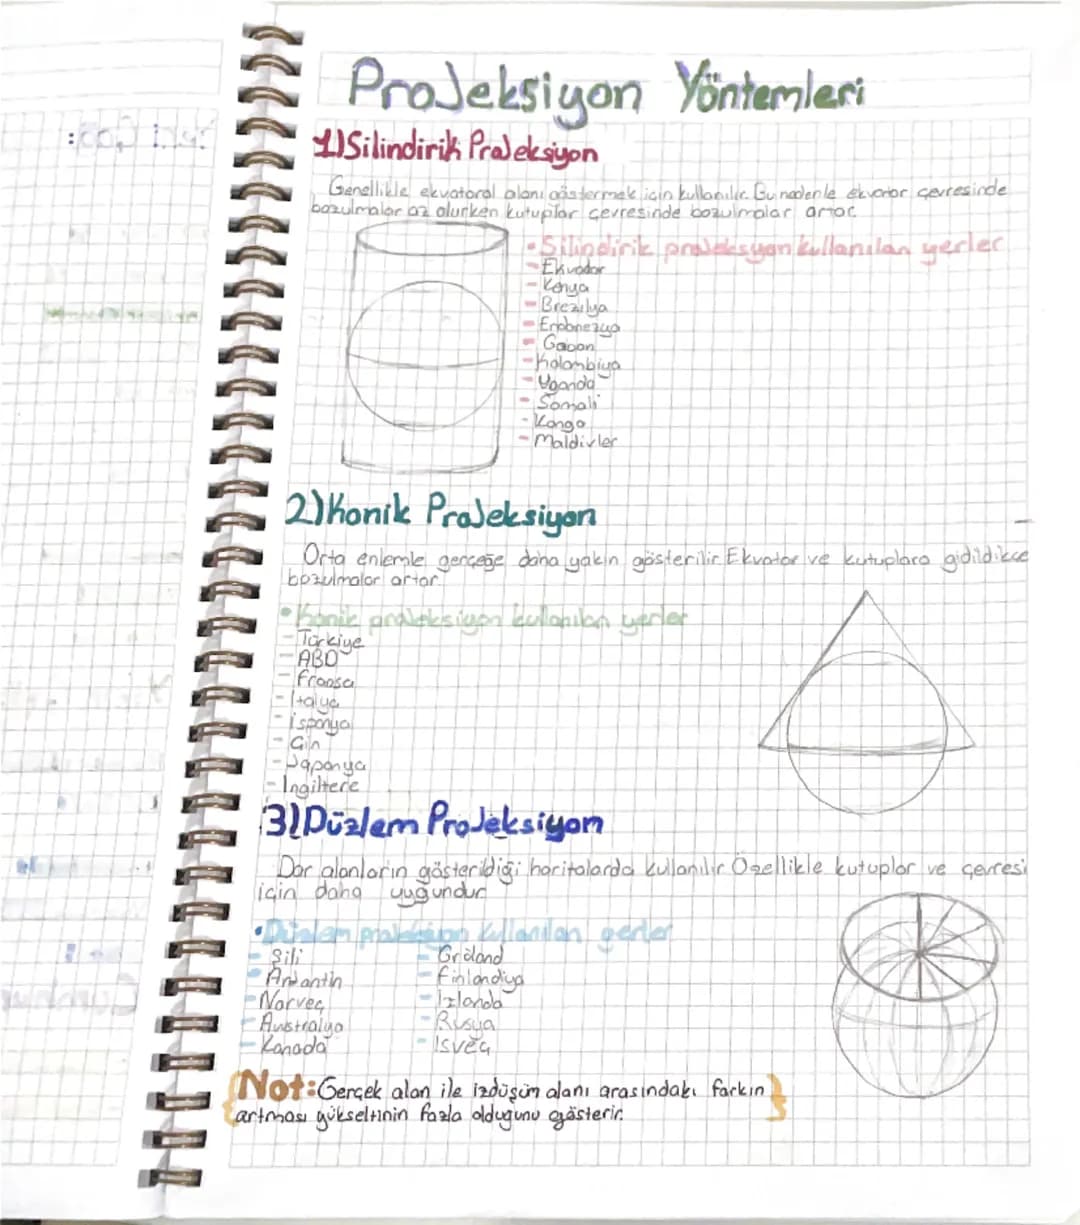 Projeksiyon Yöntemleri
1) Silindirik Projeksiyon
Genellikle ekvatoral alanı göstermek için kullanılır. Bu nedenle ekvator çevresinde
bozulmalar az olurken kutuplar çevresinde bozulmalar artar.
• Silindirik projeksiyon kullanılan yerler
- Ekvador
- Kenya
- Brezilya
- Endonezya
- Gabon
- Kolombiya
- Uganda
- Somali
- Kongo
- Maldivler
2) Konik Projeksiyon
Orta enlemle gerçeğe daha yakın gösterilir. Ekvator ve kutuplara gidildikçe
bozulmalar artar.
• Konik projeksiyon kullanılan yerler
- Türkiye
- ABD
- Fransa
- İtalya
- İspanya
- Çin
- Japonya
- İngiltere
3) Düzlem Projeksiyon
Dar alanların gösterildiği haritalarda kullanılır. Özellikle kutuplar ve çevresi
için daha uygundur.
• Düzlem projeksiyon kullanılan yerler
- Şili
- Arjantin
- Norveç
- Avustralya
- Kanada
- Grönland
- Finlandiya
- İzlanda
- Rusya
- İsveç
{Not: Gerçek alan ile izdüşüm alanı arasındaki farkın
artması yükseltinin fazla olduğunu gösterir.}